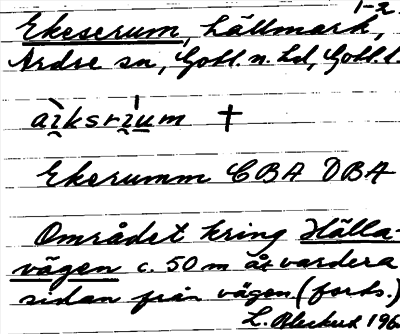 1-2.
Ekeserum, hällmark,
Ardre sn, Gotl. n. hd, Gotl. l.
aìksrìum †
Ekerumm CBA DBA
Området kring Hälla-
vägen c. 50 m åt vardera
sidan från vägen (forts.)
L. 196